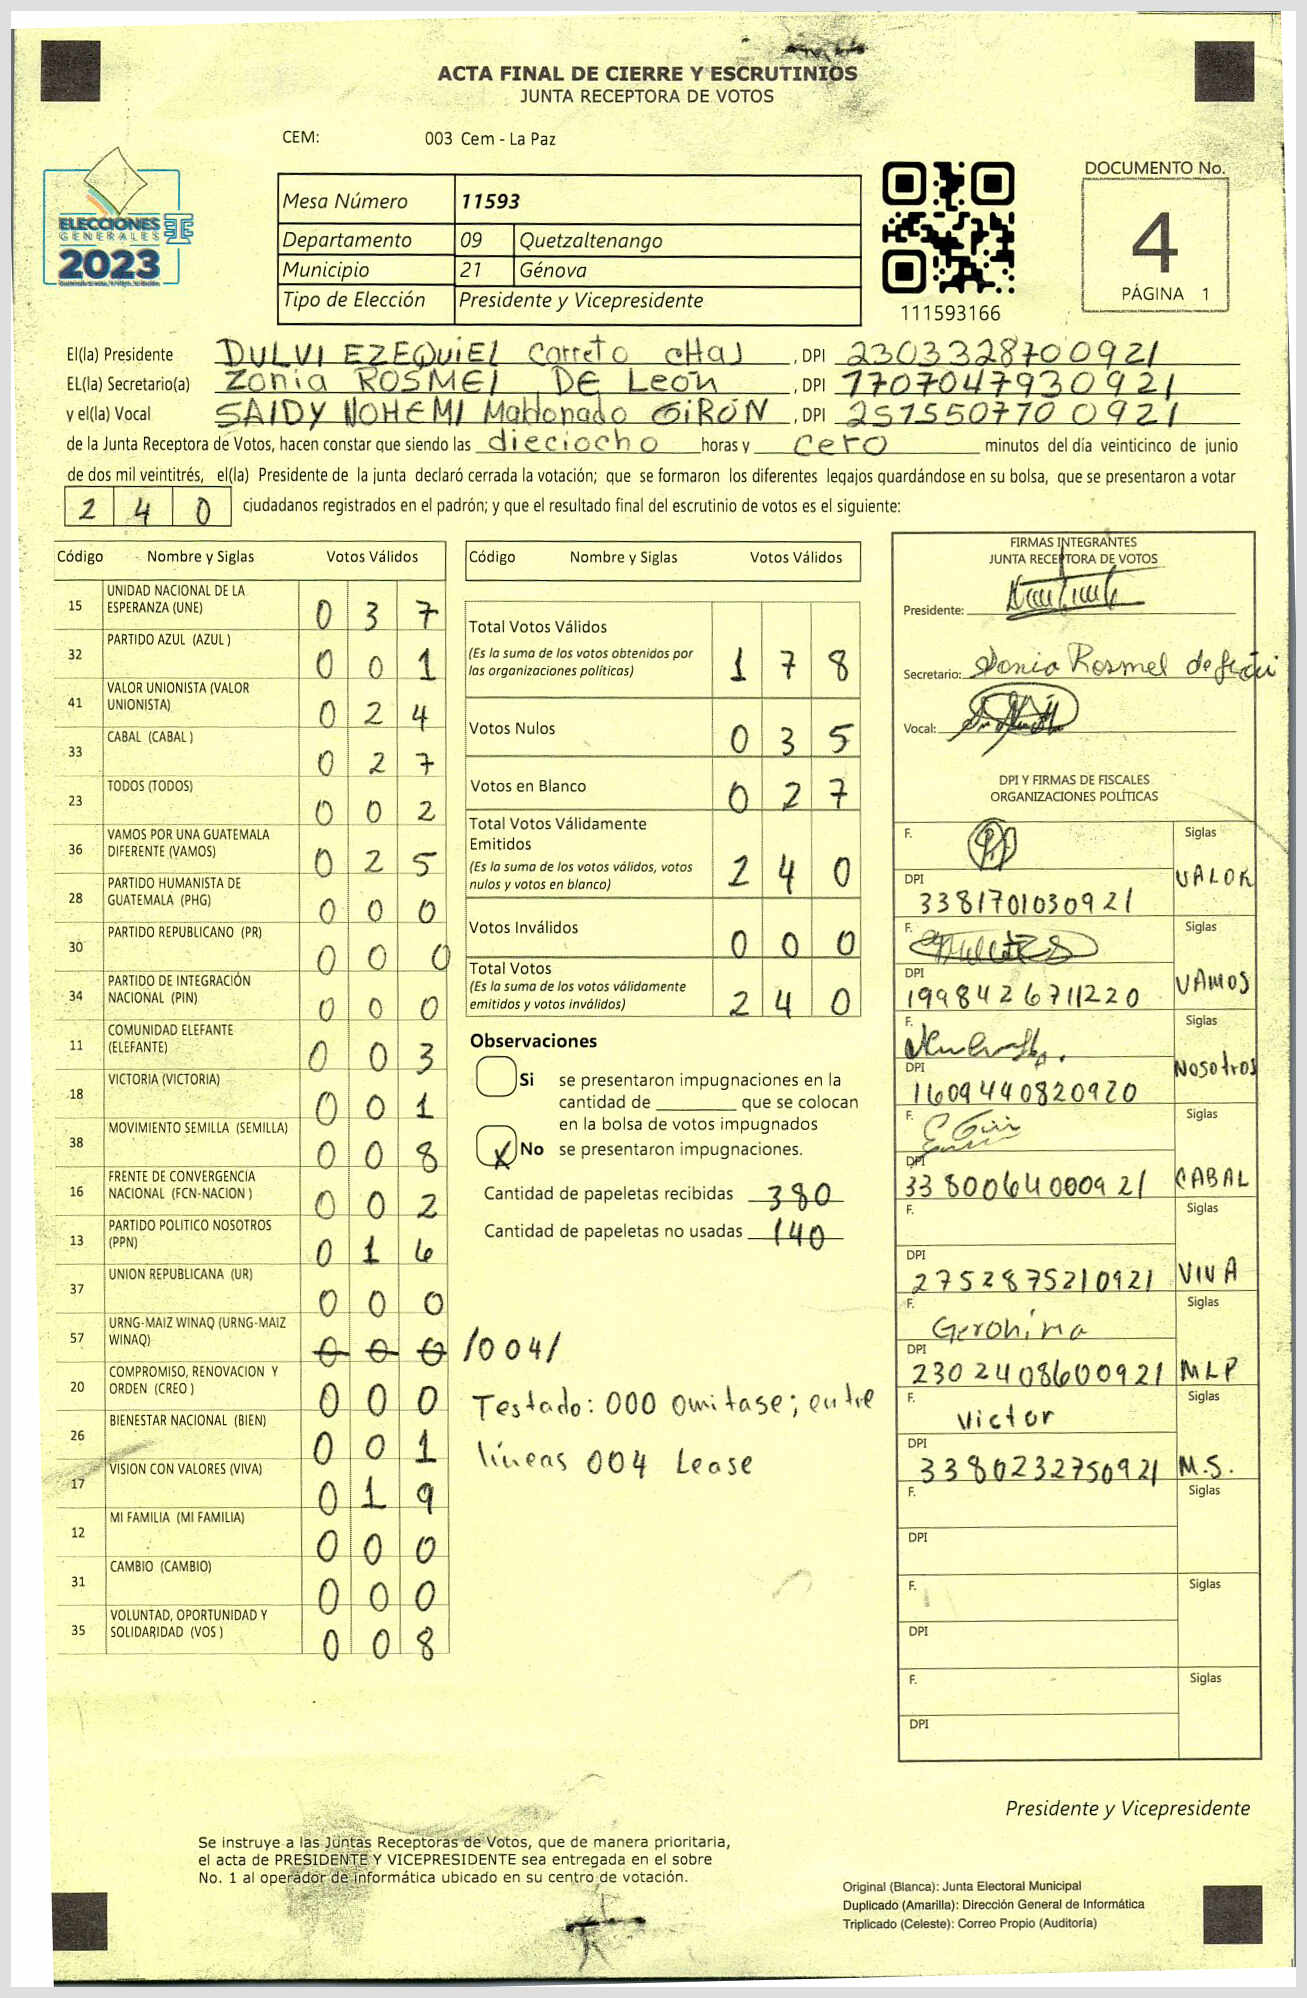 ACTA FINAL DE CIERRE Y ESCRUTINIOS
JUNTA RECEPTORA DE VOTOS
CEM: 003 Cem - La Paz
ELECCIONES
GENERALES
2023
Mesa Número 11593
Departamento 09 Quetzaltenango
Municipio 21 Génova
Tipo de Elección Presidente y Vicepresidente
111593166
DOCUMENTO No.
4
PÁGINA 1
El(la) Presidente DULVI EZEQUIEL Carreto cHaJ , DPI 2303328700921
EL(la) Secretario(a) Zonia ROSMEl DE León , DPI 1707047930921
y el(la) Vocal SAIDY NOHEMI Maldonado GIRÓN , DPI 2515507700921
de la Junta Receptora de Votos, hacen constar que siendo las dieciocho horas y cero minutos del día veinticinco de junio
de dos mil veintitrés, el(la) Presidente de la junta declaró cerrada la votación; que se formaron los diferentes legajos guardándose en su bolsa, que se presentaron a votar
2 4 0 ciudadanos registrados en el padrón; y que el resultado final del escrutinio de votos es el siguiente:
Código Nombre y Siglas Votos Válidos
15 UNIDAD NACIONAL DE LA
ESPERANZA (UNE) 0 3 7
32 PARTIDO AZUL (AZUL ) 0 0 1
41 VALOR UNIONISTA (VALOR
UNIONISTA) 0 2 4
33 CABAL (CABAL ) 0 2 7
23 TODOS (TODOS) 0 0 2
36 VAMOS POR UNA GUATEMALA
DIFERENTE (VAMOS) 0 2 5
28 PARTIDO HUMANISTA DE
GUATEMALA (PHG) 0 0 0
30 PARTIDO REPUBLICANO (PR) 0 0 0
34 PARTIDO DE INTEGRACIÓN
NACIONAL (PIN) 0 0 0
11 COMUNIDAD ELEFANTE
(ELEFANTE) 0 0 3
18 VICTORIA (VICTORIA) 0 0 1
38 MOVIMIENTO SEMILLA (SEMILLA) 0 0 8
16 FRENTE DE CONVERGENCIA
NACIONAL (FCN-NACION ) 0 0 2
13 PARTIDO POLITICO NOSOTROS
(PPN) 0 1 6
37 UNION REPUBLICANA (UR) 0 0 0
57 URNG-MAIZ WINAQ (URNG-MAIZ
WINAQ) 0 0 0 /004/
20 COMPROMISO, RENOVACION Y
ORDEN (CREO ) 0 0 0
26 BIENESTAR NACIONAL (BIEN) 0 0 1
17 VISION CON VALORES (VIVA) 0 1 9
12 MI FAMILIA (MI FAMILIA) 0 0 0
31 CAMBIO (CAMBIO) 0 0 0
35 VOLUNTAD, OPORTUNIDAD Y
SOLIDARIDAD (VOS ) 0 0 8
Código Nombre y Siglas Votos Válidos
Total Votos Válidos
(Es la suma de los votos obtenidos por
las organizaciones políticas) 1 7 8
Votos Nulos 0 3 5
Votos en Blanco 0 2 7
Total Votos Válidamente
Emitidos
(Es la suma de los votos válidos, votos
nulos y votos en blanco) 2 4 0
Votos Inválidos 0 0 0
Total Votos
(Es la suma de los votos válidamente
emitidos y votos inválidos) 2 4 0
Observaciones
Si se presentaron impugnaciones en la
cantidad de ________ que se colocan
en la bolsa de votos impugnados
X No se presentaron impugnaciones.
Cantidad de papeletas recibidas 380
Cantidad de papeletas no usadas 140
Testado: 000 omitase; entre
líneas 004 Lease
FIRMAS INTEGRANTES
JUNTA RECEPTORA DE VOTOS
Presidente:
Secretario: Sonia Rosmel de León
Vocal:
DPI Y FIRMAS DE FISCALES
ORGANIZACIONES POLÍTICAS
F. Siglas
DPI VALOR
3381701030921
F. Siglas
DPI VAMOS
1998426711220
F. Siglas
DPI Nosotros
1609440820920
F. Siglas
DPI
3380064000921 CABAL
F. Siglas
DPI
2752875210921 VIVA
F. Geronima Siglas
DPI
2302408600921 MLP
F. Victor Siglas
DPI
3380232750921 M.S.
F. Siglas
DPI
F. Siglas
DPI
F. Siglas
DPI
Presidente y Vicepresidente
Se instruye a las Juntas Receptoras de Votos, que de manera prioritaria,
el acta de PRESIDENTE Y VICEPRESIDENTE sea entregada en el sobre
No. 1 al operador de informática ubicado en su centro de votación.
Original (Blanca): Junta Electoral Municipal
Duplicado (Amarilla): Dirección General de Informática
Triplicado (Celeste): Correo Propio (Auditoría)